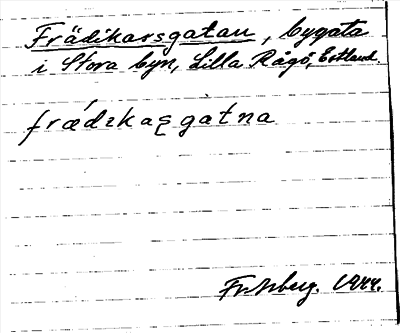 Frädikarsgatan, bygata
i Stora byn, Lilla Rågö, Estland.
frǽdıkaʂgatna
1944.